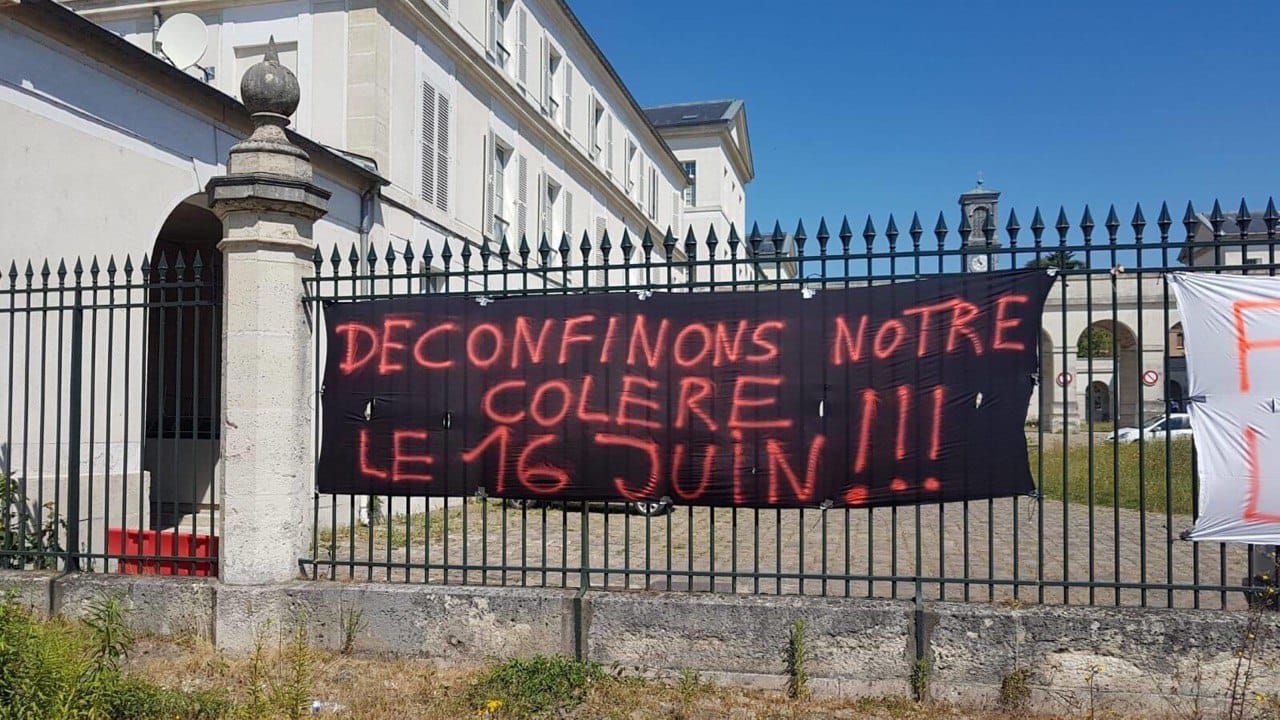 DECONFINONS NOTRE
COLERE
LE 16 JUIN !!!